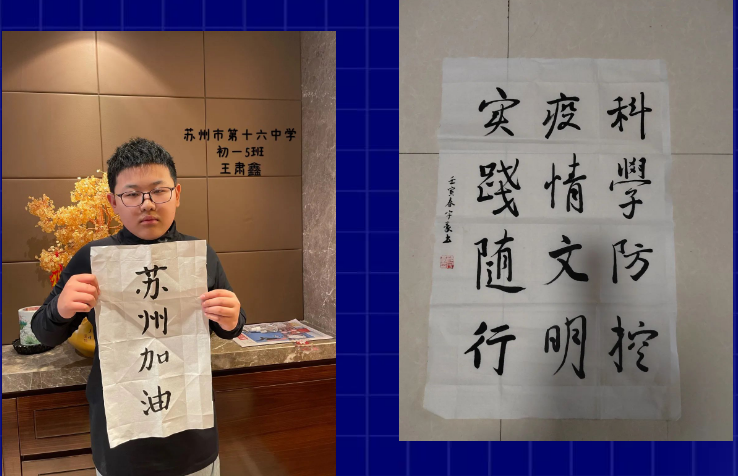 苏州市第十六中学
初一5班
王肃鑫
苏州加油
科學防控
疫情文明
实踐随行
壬寅春